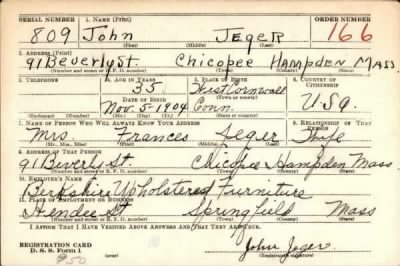 SERIAL NUMBER 1. NAME (Print) ORDER NUMBER
809 John Jeger 166
(First) (Middle) (Last)
2. ADDRESS (Print)
91 Beverly St. Chicopee Hampden Mass
(Number and street or R. F. D. number) (Town) (County) (State)
3. TELEPHONE 4. AGE IN YEARS 5. PLACE OF BIRTH 6. COUNTRY OF CITIZENSHIP
35 West Cornwall
DATE OF BIRTH (Town or county)
Nov. 5-1904 Conn. U.S.A.
(Exchange) (Number) (Mo.) (Day) (Yr.) (State or country)
7. NAME OF PERSON WHO WILL ALWAYS KNOW YOUR ADDRESS 8. RELATIONSHIP OF THAT PERSON
Mrs. Frances Jeger Wife
(Mr., Mrs., Miss) (First) (Middle) (Last)
9. ADDRESS OF THAT PERSON
91 Beverly St Chicopee Hampden Mass
(Number and street or R. F. D. number) (Town) (County) (State)
10. EMPLOYER'S NAME
Berkshire Upholstered Furniture
11. PLACE OF EMPLOYMENT OR BUSINESS
Hendee St Springfield Mass
(Number and street or R. F. D. number) (Town) (County) (State)
I AFFIRM THAT I HAVE VERIFIED ABOVE ANSWERS AND THAT THEY ARE TRUE.
REGISTRATION CARD
D. S. S. Form 1
John Jeger
(Registrant's signature)